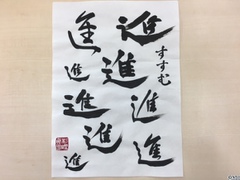 進
すすむ
進
進
進
進
進
進
進
進